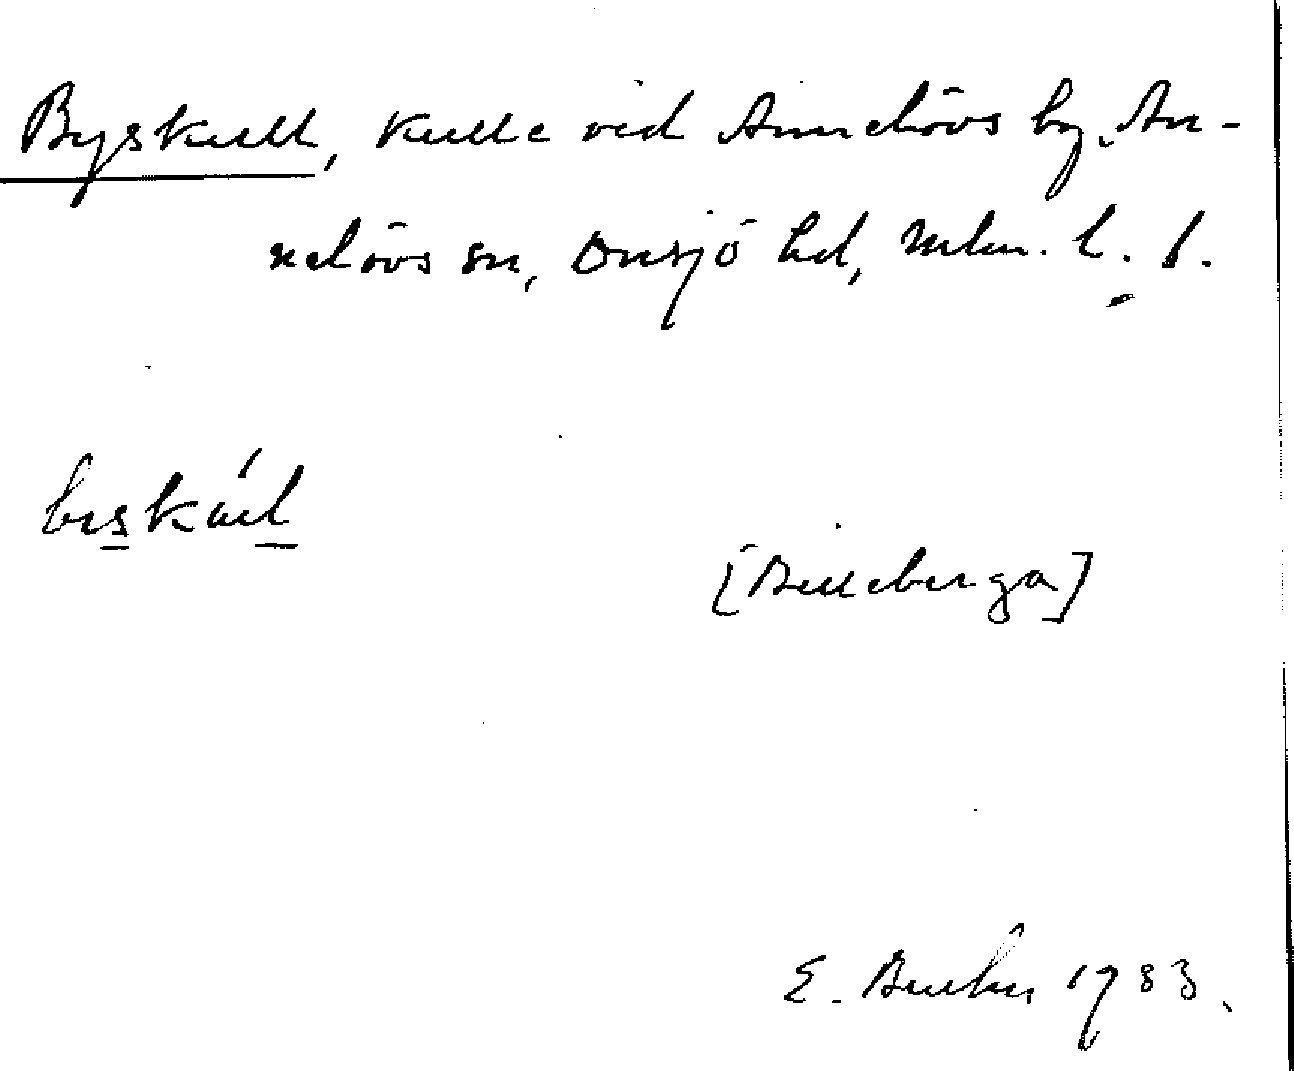 Byskull, kulle vid Annelövs by, An-
nelövs sn, Onsjö hd, Mlm. l.
[Billeberga]
E. 1933.